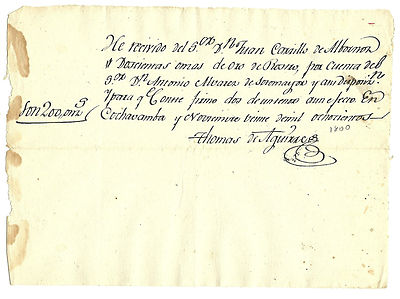 He recivido del S.or D.n Juan Carrillo de Albornoz
Doscientas onzas de oro de Rescate, por Cuenta del
S.or D.n Antonio Alvarez de Sotomayor y a su disposi.n
Son 200, on.s
y para q.e Conste firmo dos de un tenor a un efecto. En
Cochavamba y Noviembre veinte de mil ochocientos
1800
Thomas de Aguirre